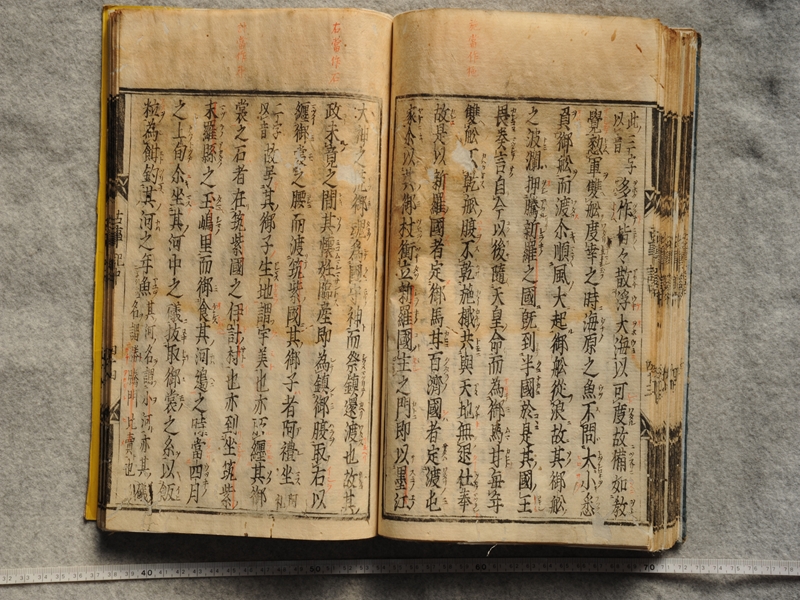 此三字
以音 多作皆々散浮大海以可度故備如教
覺整軍雙舩度幸之時海原之魚不問大小悉
負御舩而渡尒順風大起御舩從浪故其御舩
之波瀾押騰新羅之國既到半國於是其國王
畏奏言自今以後隨天皇命而為御馬甘毎年
雙舩不乾舩腹不乾施檝共與天地無退仕奉
故是以新羅國者定御馬甘百濟國者定渡屯
家尒以其御杖衝立新羅國主之門即以墨江
大神之荒御魂為國守神而祭鎮還渡也故其
政未竟之間其懷妊臨産即為鎮御腹取石以
纏御裳之腰而渡筑紫國其御子者阿禮坐
阿礼
二字
以音 故号其御子生地謂宇美也亦所纏其御
裳之石者在筑紫國之伊計村也亦到坐筑紫
末羅縣之玉嶋里而御食其河邊之時當四月
之上旬尒坐其河中之礒拔取御裳之糸以飯
粒為餌釣其河之年魚
其河名謂小河亦其礒
名謂勝門比賣也
古事記中